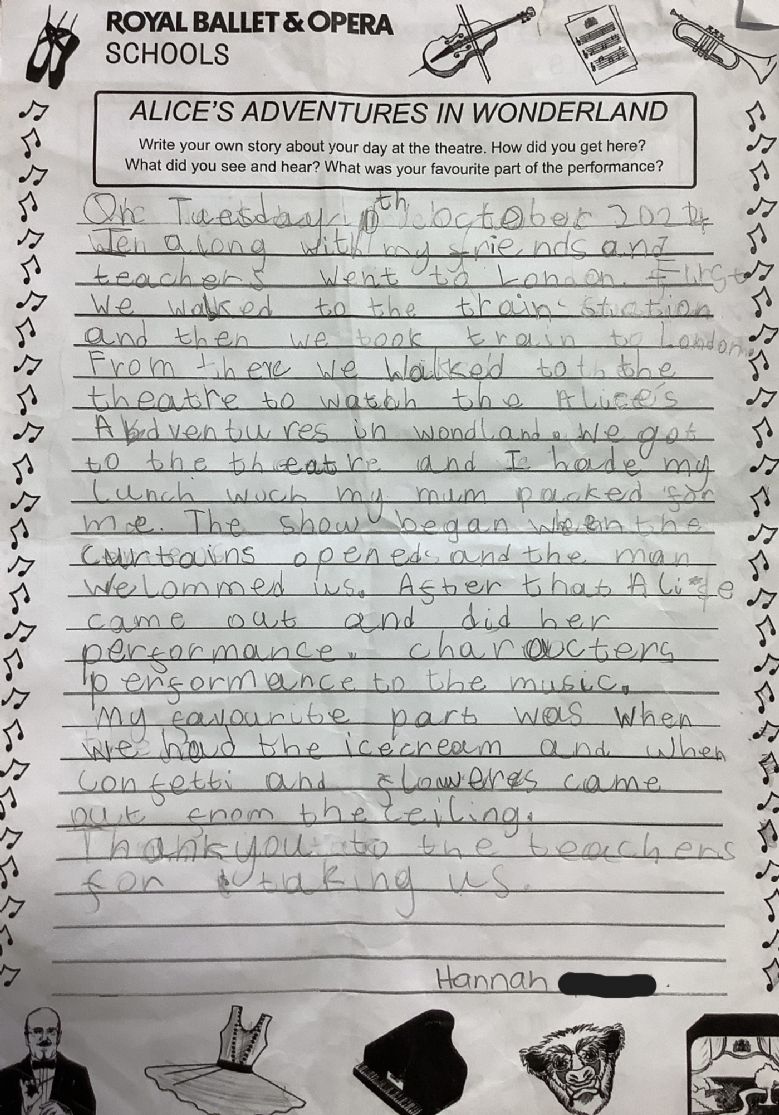 ROYAL BALLET & OPERA
SCHOOLS
ALICE'S ADVENTURES IN WONDERLAND
Write your own story about your day at the theatre. How did you get here?
What did you see and hear? What was your favourite part of the performance?
On Tuesday 10th October 2024
along with my friends and
teachers went to London. First
We walked to the train station
and then we took train to London.
From there we walked to the
theatre to watch the Alice's
Adventures in wondland. We got
to the theatre and I hade my
Lunch wuch my mum packed for
me. The show began when the
curtains opened and the man
welommed us. After that Alice
came out and did her
performance. charocters
performance to the music.
My favourite part was when
we had the icecream and when
confetti and floweres came
out from the ceiling.
Thankyou to the teachers
for taking us.
Hannah